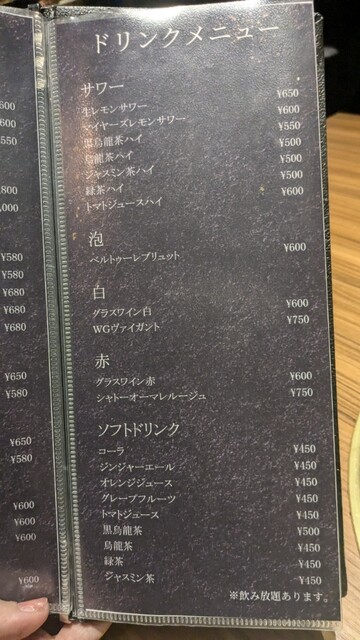 600
600
550
,800
,000
¥580
¥580
¥680
¥680
¥680
¥650
¥580
¥650
¥580
¥600
¥600
¥600
¥600
ドリンクメニュー
サワー
生レモンサワー ¥650
マイヤーズレモンサワー ¥600
黒烏龍茶ハイ ¥550
烏龍茶ハイ ¥500
ジャスミン茶ハイ ¥500
緑茶ハイ ¥500
トマトジュースハイ ¥600
泡
ベルトゥーレブリュット ¥600
白
グラスワイン白 ¥600
WGヴァイガント ¥750
赤
グラスワイン赤 ¥600
シャトーオーマレルージュ ¥750
ソフトドリンク
コーラ ¥450
ジンジャーエール ¥450
オレンジジュース ¥450
グレープフルーツ ¥450
トマトジュース ¥450
黒烏龍茶 ¥500
烏龍茶 ¥450
緑茶 ¥450
ジャスミン茶 ¥450
※飲み放題あります。